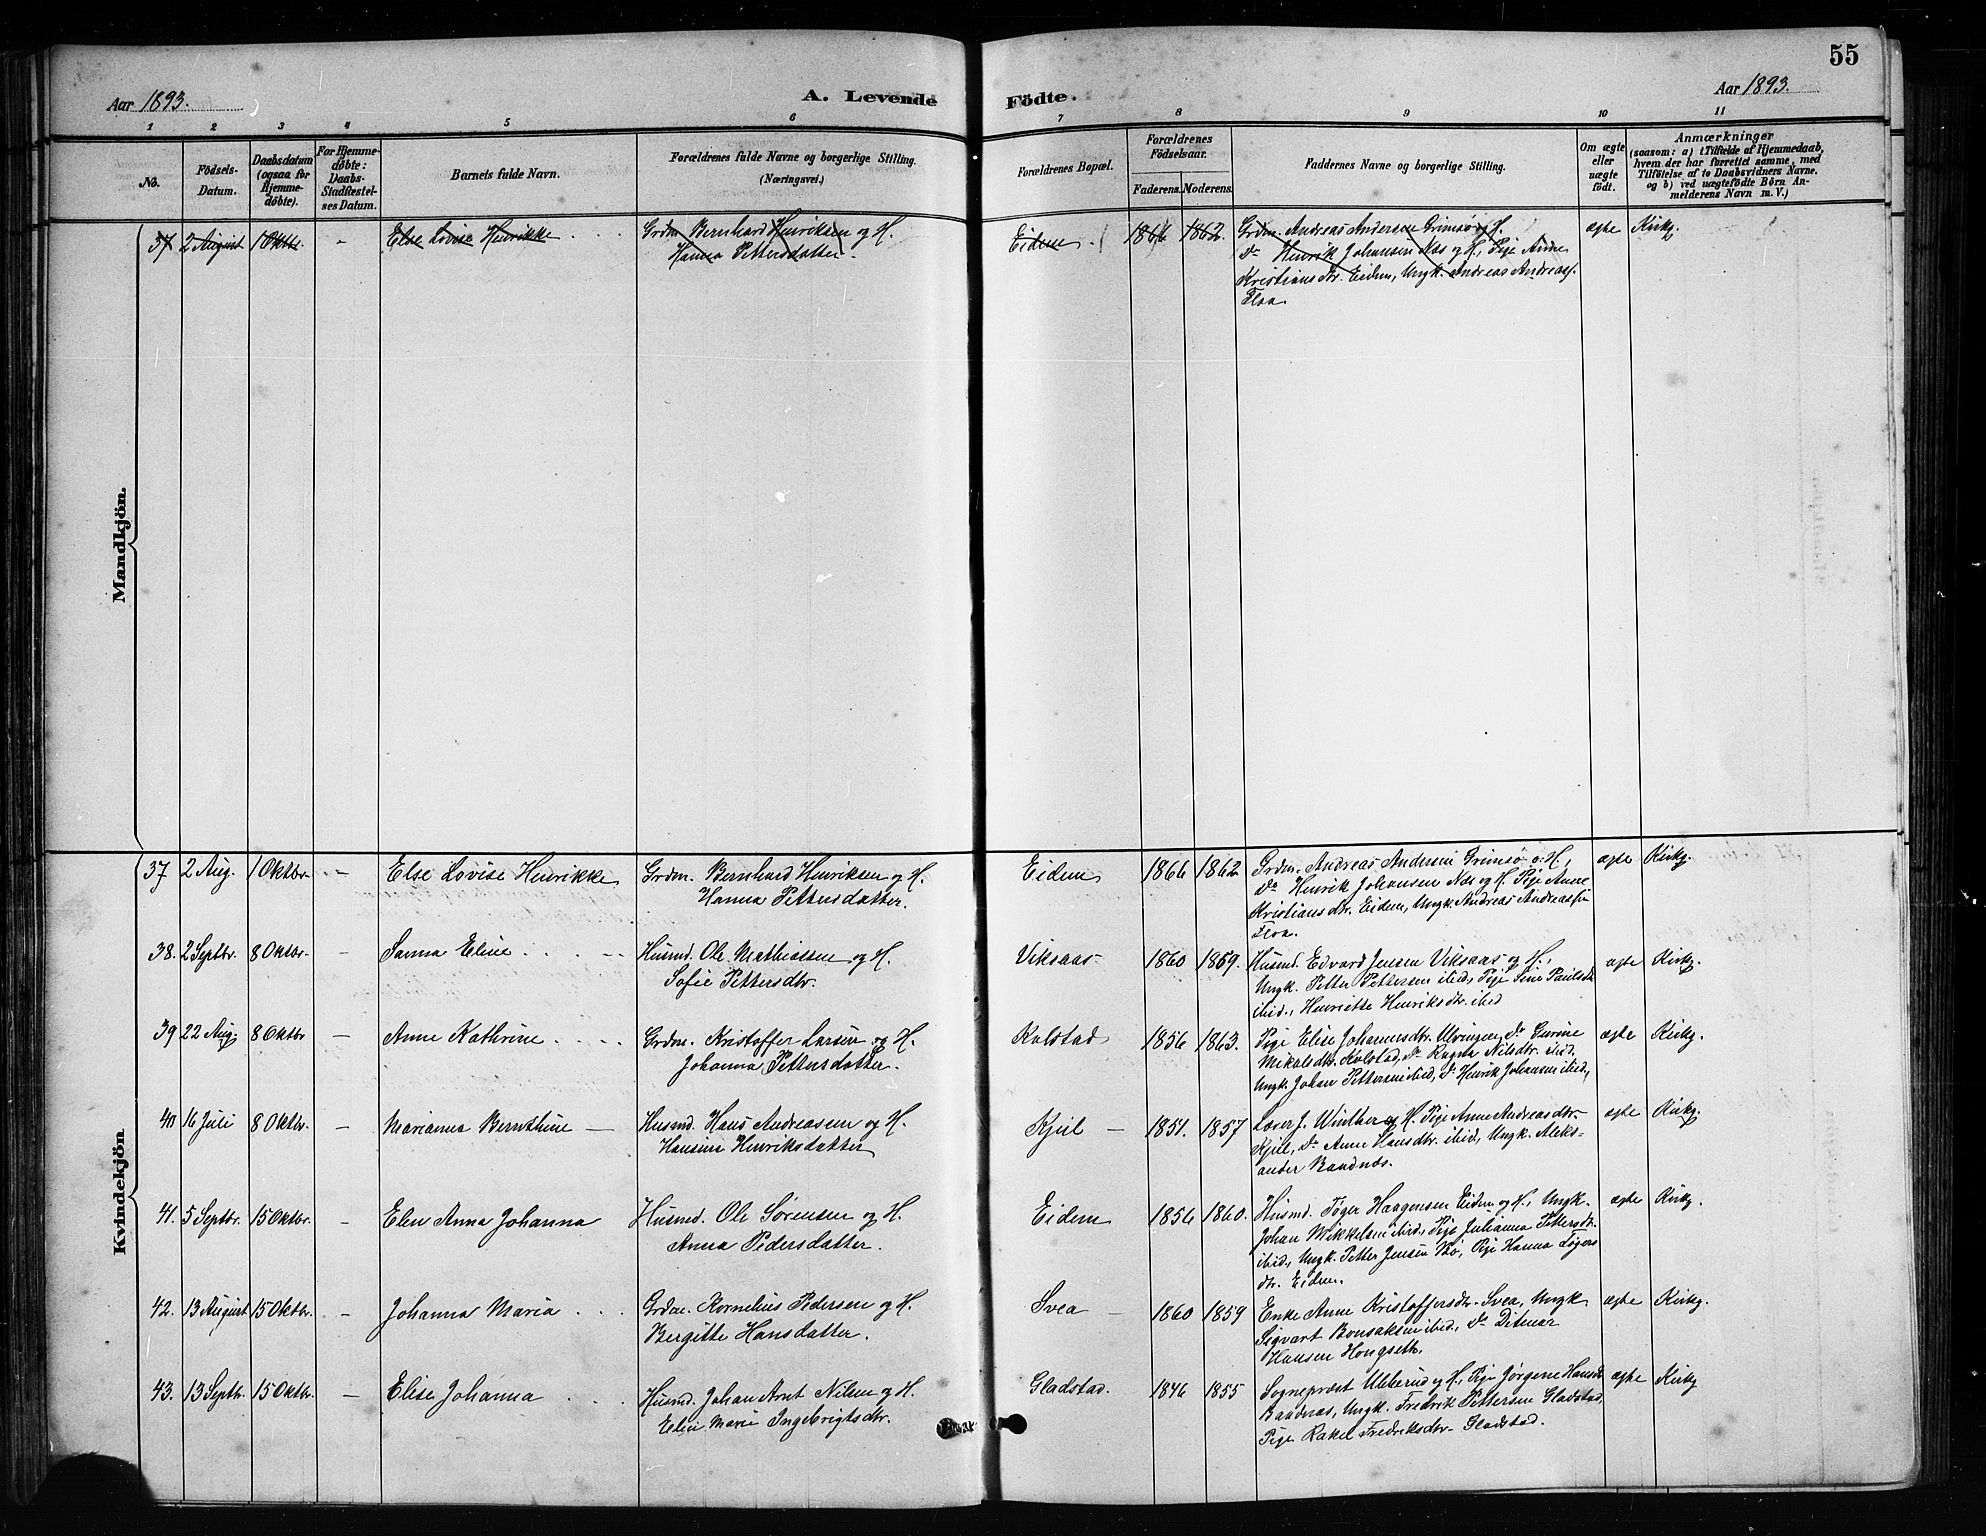 55
Aar 1893.
A. Levende Födte.
Aar 1893.
1 2 3 4 5 6 7 8 9 10 11
No.
Födsels-Datum.
Daabsdatum (ogsaa for Hjemme-döbte).
For Hjemme-döbte: Daabs-Stadfæstel-ses Datum.
Barnets fulde Navn.
Forældrenes fulde Navne og borgerlige Stilling.
(Næringsvei.)
Forældrenes Bopæl.
Forældrenes Födselsaar.
Faderens. Moderens.
Faddernes Navne og borgerlige Stilling.
Om ægte eller uægte födt.
Anmærkninger
(saasom: a) i Tilfælde af Hjemmedaab,
hvem der har forrettet samme, med
Tilföielse af to Daabsvidners Navne.
og b) ved uægtefödte Börn An-
melderens Navn m. V.)
Mandkjön.
37 2 August 1 Oktbr. - Else Lovise Henrikke Grdm. Bernhard Henriksen og H.
Hanna Pettersdatter.
Eidem. 1866 1862. Grdm. Andreas Andersen Grimsø og H.
Do Henrik Johansen Næs og H., Pige Anne
Kristiansdtr. Eidem, Ungk. Andreas Andreass.
Floa.
ægte Kirkg.
Kvindekjön
37 2 Aug. 1 Oktbr. - Else Lovise Henrikke Grdm. Bernhard Henriksen og H.
Hanna Pettersdatter.
Eidem 1866 1862 Grdm. Andreas Andersen Grimsø o. H.,
Do Henrik Johansen Næs og H. Pige Anne
Kristiansdtr. Eidem, Ungk. Andreas Andreassen
Floa.
ægte Kirkg.
38. 2 Septbr. 8 Oktbr. - Sanna Eline Husmd. Ole Mathiassen og H.
Sofie Pettersdtr.
Viksaas 1860 1859. Husmd. Edvard Jensen Viksaas og H.,
Ungk. Petter Pettersen ibid., Pige Sine Paulsdtr.
ibid., Henriette Henriksdtr. ibid
ægte Kirkg.
39 22 Aug. 8 Oktbr - Anne Kathrine Grdm. Kristoffer Larsen og H.
Johanna Pettersdatter.
Kolstad 1856 1863. Pige Elise Johannesdtr. Ulvingen, Do Gurine
Mikalsdtr. Kolstad, Do Ragna Nilsdtr. ibid.
Ungk. Johan Pettersen ibid., Do Henrik Johansen ibid.,
ægte Kirkg.
40 16 Juli 8 Oktbr. - Marianna Bernthine Husmd. Hans Andreassen og H.
Hansine Henriksdatter
Kjul 1851. 1857 Lærer J. Winther og H. Pige Anne Andreasdtr.
Kjul, Do Anne Hansdtr. ibid., Ungk. Aleks-
ander Baadnæs.
ægte Kirkg.
41. 5 Septbr. 15 Oktbr. - Elen Anna Johanna Husmd. Ole Sørensen og H.
Anna Pedersdatter.
Eidem 1856 1860. Husmd. Tøger Haagensen Eidem og H., Ungk.
Johan Mikkelsen ibid., Pige Julianna Pettersdtr.
ibid., Ungk. Petter Jensen Bø, Pige Hanna Tøgers
dtr. Eidem.
ægte Kirkg.
42. 13 August 15 Oktbr. - Johanna Maria Grdm. Kornelius Pedersen og H.
Bergitte Hansdatter.
Svea 1860 1859 Enke Anne Kristoffersdtr. Svea, Ungk.
Sigvart Bonsaksen ibid., Do Ditmar
Hansen Hongseth.
ægte Kirkg.
43. 13 Septbr. 15 Oktbr. - Elise Johanna Husmd. Johan Arnt Nilsen og H.
Elen Marie Ingebrigtsdtr.
Gladstad. 1846 1855 Sogneprest Ulleberud og H., Pige Jørgene Hansdtr.
Baadnæs, Ungk. Fredrik Pettersen Gladstad,
Pige Rakel Fredriksdtr. Gladstad.
ægte Kirkg